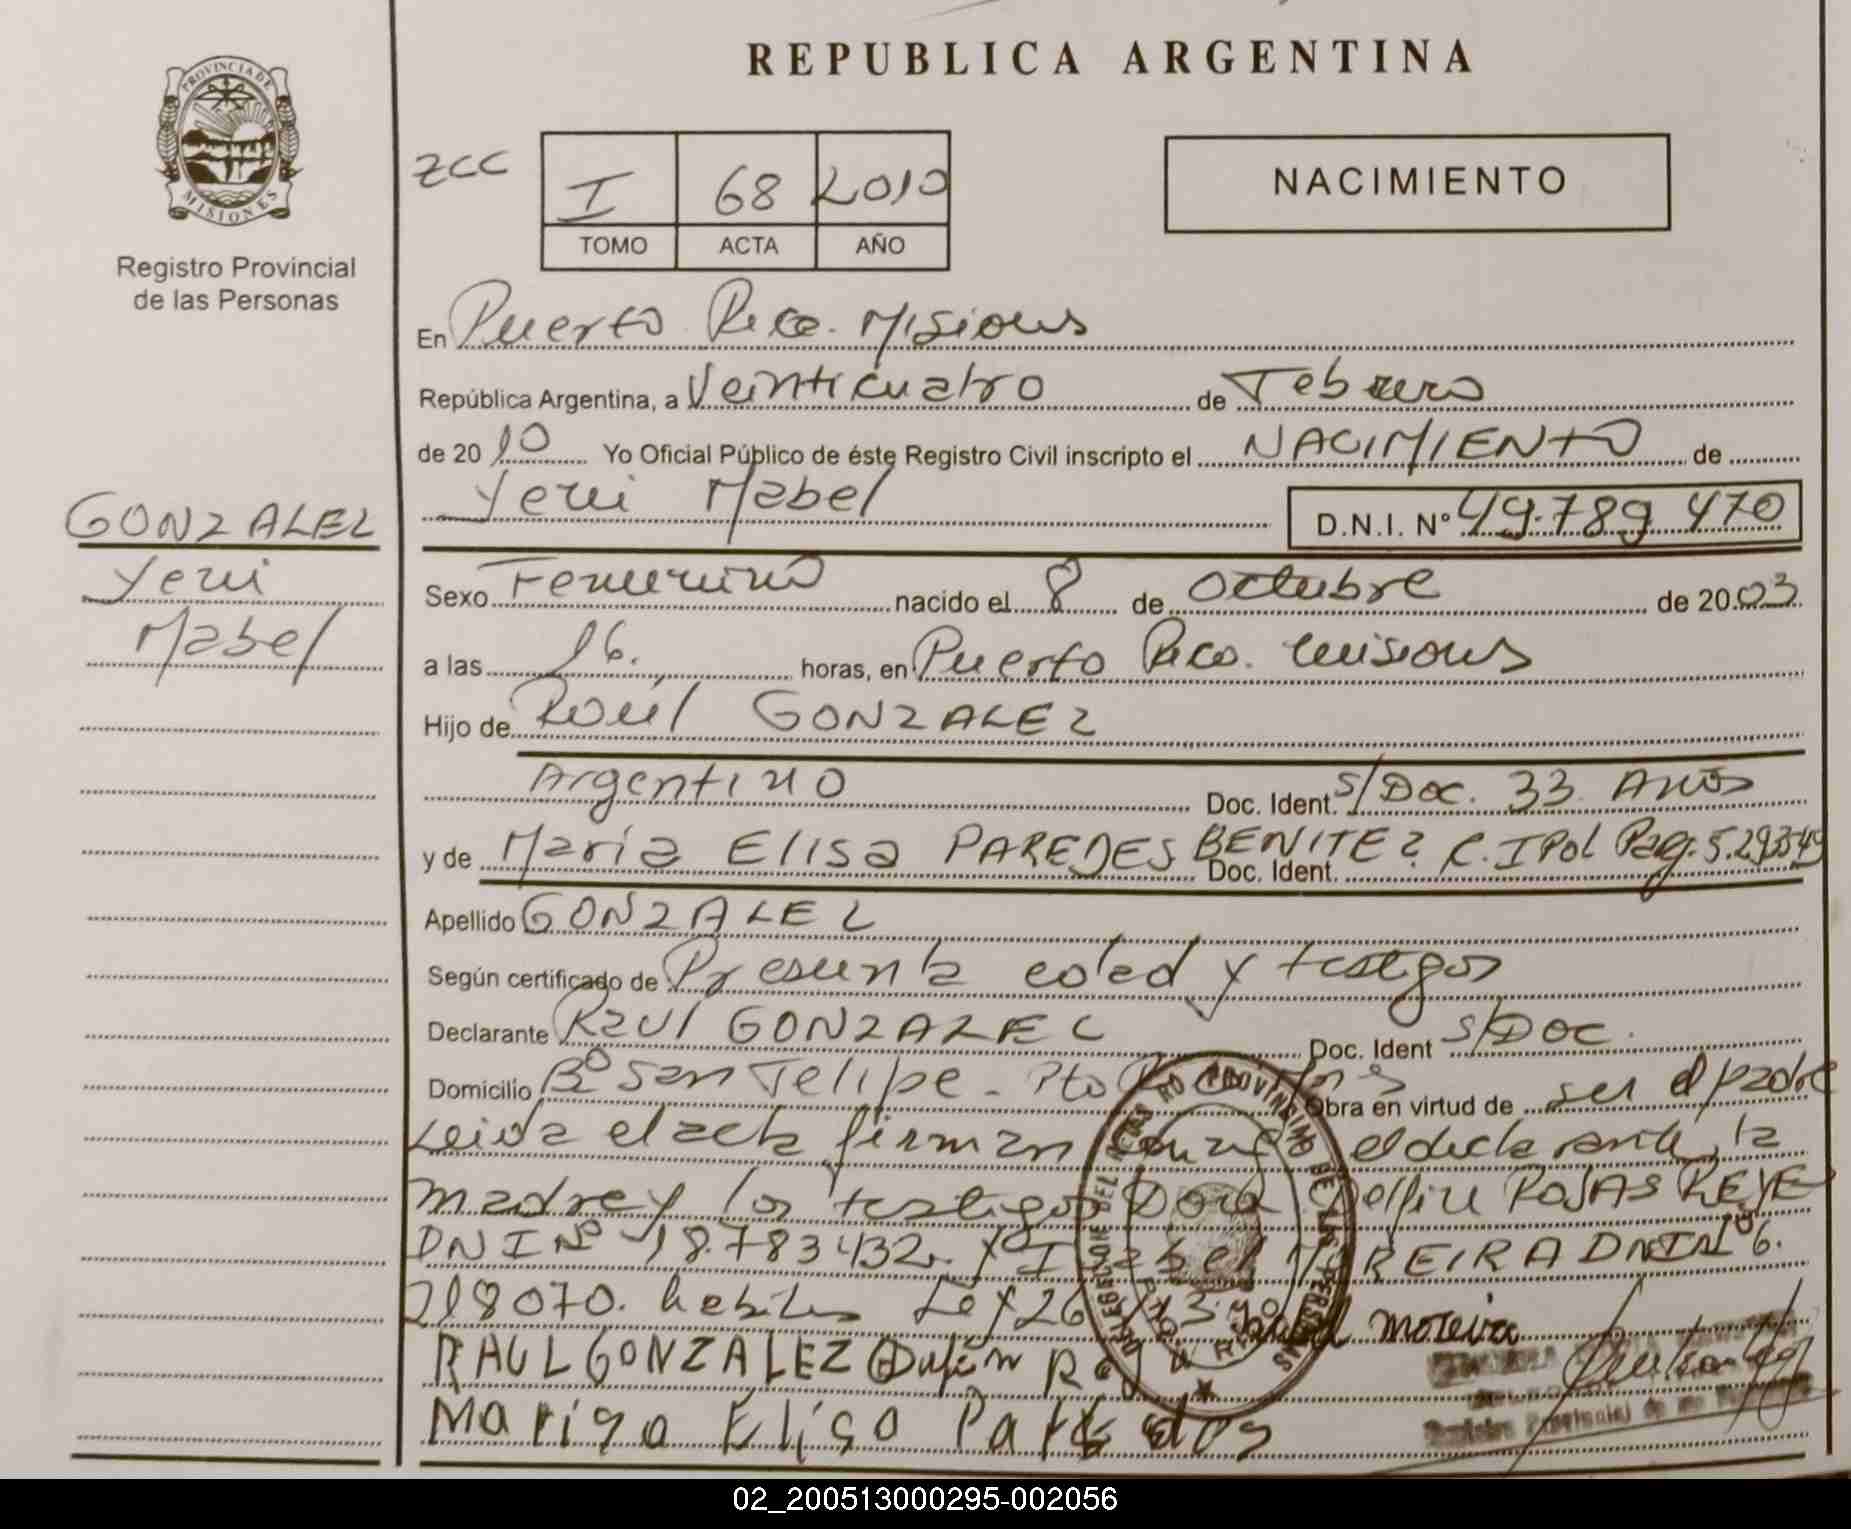 PROVINCIA DE
MISIONES
Registro Provincial
de las Personas
REPUBLICA ARGENTINA
ZCC
I 68 2010
TOMO ACTA AÑO
NACIMIENTO
En Puerto Rico. Misiones
República Argentina, a Veinticuatro de Febrero
de 20 10 Yo Oficial Público de éste Registro Civil inscripto el NACIMIENTO de
Yeni Mabel D.N.I. Nº 49.789 470
GONZALEZ
Yeni
Mabel
Sexo Femenino nacido el 8 de Octubre de 20 03
a las 16. horas, en Puerto Rico. Misiones
Hijo de Raúl GONZALEZ
Argentino Doc. Ident. S/Doc. 33 Años
y de María Elisa PAREDES BENITEZ Doc. Ident. C. IPol Pag. 5.293549
Apellido GONZALEZ
Según certificado de Presunta edad y testigos
Declarante Raul GONZALEZ Doc. Ident S/DOC.
Domicilio Bº San Felipe - Pto Obra en virtud de ser el padre
Leida el acta firman el declarante, la
madre y los testigos Dora ROJAS REYE
DNI Nº 18.783432. y MOREIRA DNI Nº 6.
218070. habiles Ley 26
moreira
RAUL GONZALEZ
Marisa Elisa Paredes
02_200513000295-002056